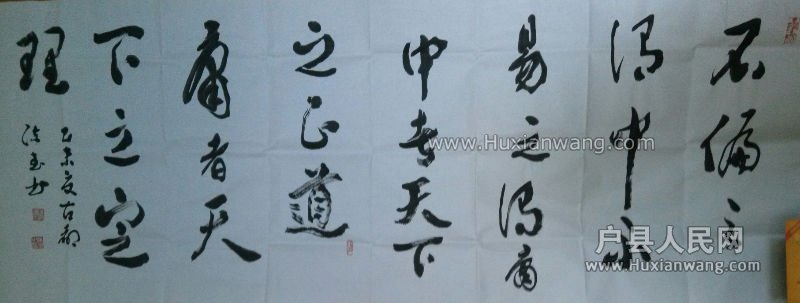 不偏之
谓中不
易之谓庸
中者天下
之正道
庸者天
下之定
理
乙未夏古都
www.Huxianwang.com
www.Huxianwang.com
户县人民网
www.Huxianwang.com